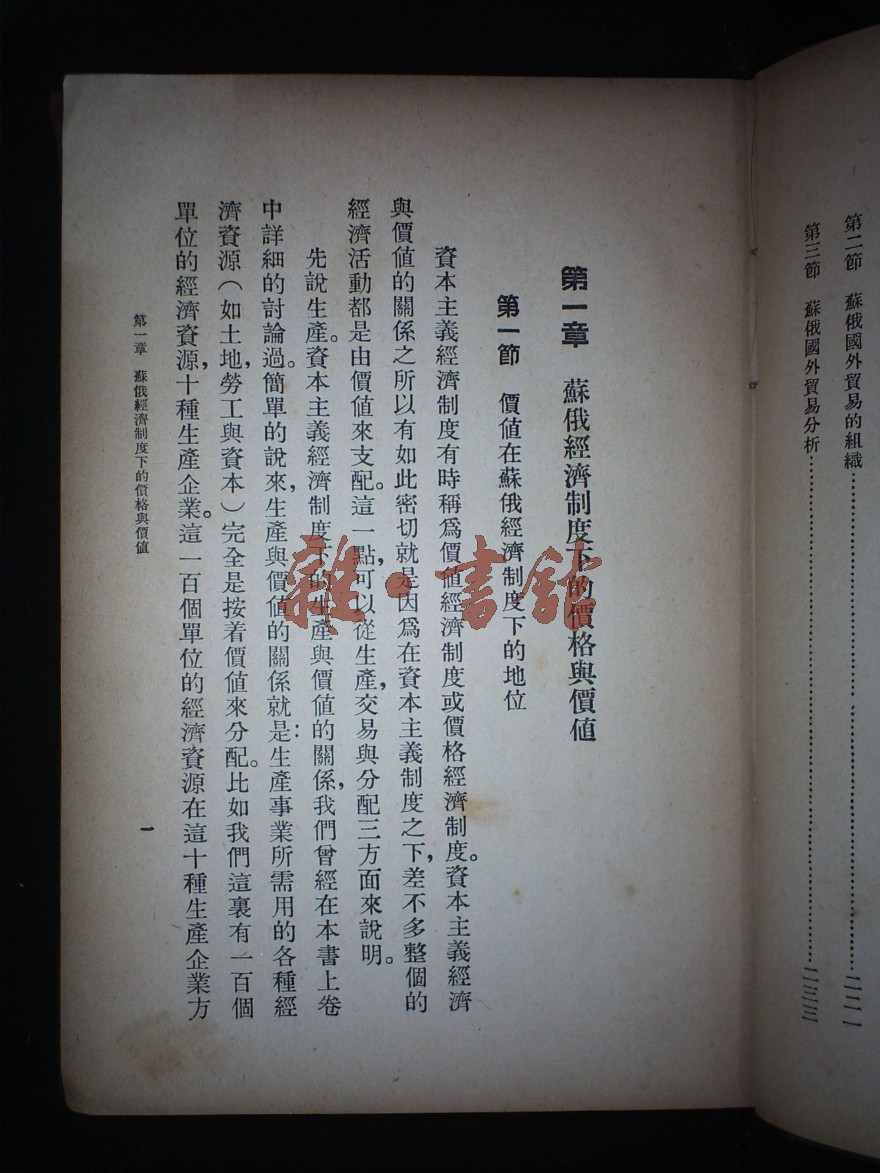 第二節　蘇俄國外貿易的組織……二二一
第三節　蘇俄國外貿易分析……二三三
第一章　蘇俄經濟制度下的價格與價值
第一節　價值在蘇俄經濟制度下的地位
資本主義經濟制度有時稱爲價值經濟制度或價格經濟制度。資本主義經濟
與價值的關係之所以有如此密切就是因爲在資本主義制度之下，差不多整個的
經濟活動都是由價值來支配。這一點可以從生產，交易與分配三方面來說明。
先說生產。資本主義經濟制度下的生產與價值的關係，我們曾經在本書上卷
中詳細的討論過。簡單的說來，生產與價值的關係就是：生產事業所需用的各種經
濟資源（如土地，勞工與資本）完全是按着價值來分配。比如我們這裏有一百個
單位的經濟資源，十種生產企業。這一百個單位的經濟資源在這十種生產企業方
第一章　蘇俄經濟制度下的價格與價值
一
雜·書館